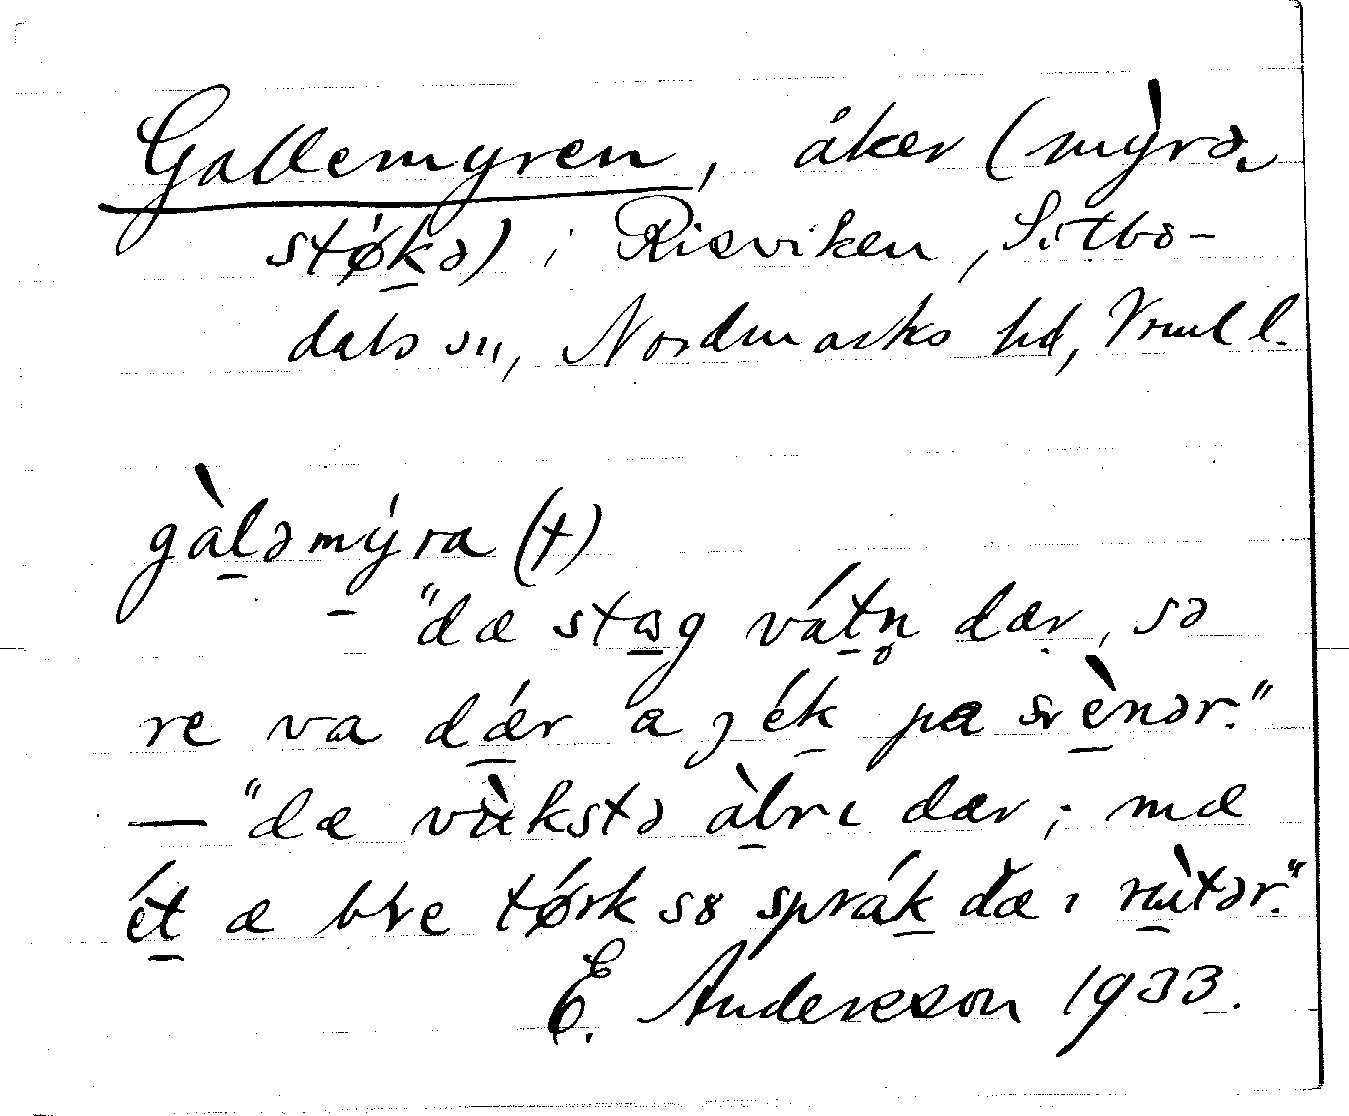 Gallemyren, åker (mỳrə
støkə) i Risviken, Sillbo-
dals sn, Nordmarks hd, Vrml l.
gàləmýra (t)
"dæ stag vátn̥ dær, sə
re va dǽr a jék pa svènər."
— "dæ vùkstə àlrı dær; mæ
ét æ ble tørk so sprák dæ ı rùtər."
E. Andersson 1933.